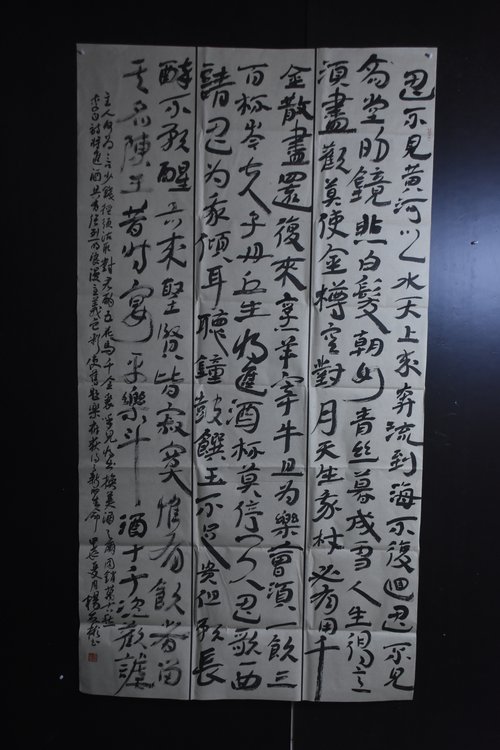 君不見黃河之水天上來奔流到海不復迴君不見
高堂明鏡悲白髮朝如青絲暮成雪人生得意
須盡歡莫使金樽空對月天生我材必有用千
金散盡還復來烹羊宰牛且為樂會須一飲三
百杯岑夫子丹丘生將進酒杯莫停與君歌一曲
請君為我傾耳聽鐘鼓饌玉不足貴但願長
醉不願醒古來聖賢皆寂寞惟有飲者留
其名陳王昔時宴平樂斗酒十千恣歡謔
主人何為言少錢徑須沽取對君酌五花馬千金裘呼兒將出換美酒與爾同銷萬古愁
李白詩將進酒具有強烈的浪漫主義色彩使舊題樂府獲得新的生命 夏月楊